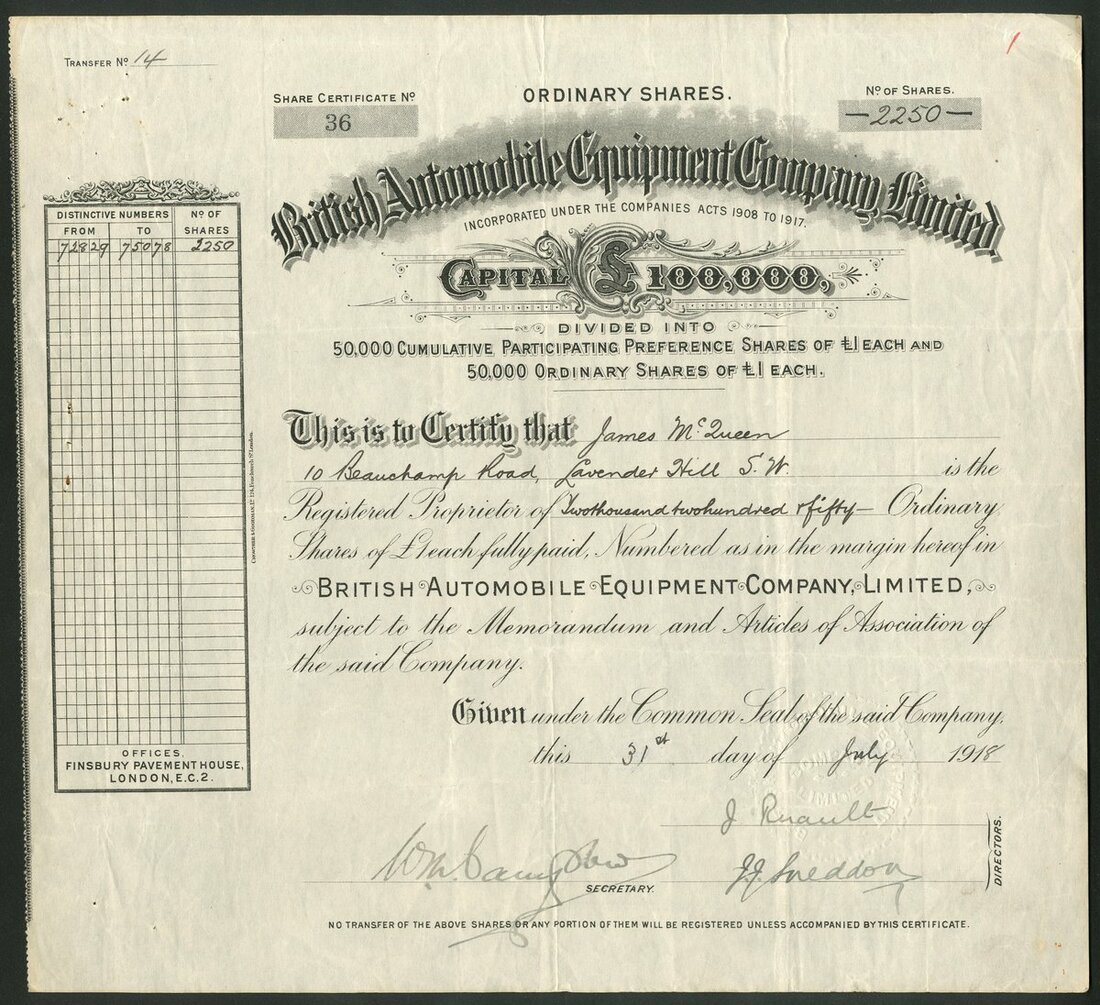 TRANSFER No 14
1
SHARE CERTIFICATE No
36
ORDINARY SHARES.
No OF SHARES.
—2250—
British Automobile Equipment Company Limited
INCORPORATED UNDER THE COMPANIES ACTS 1908 TO 1917.
CAPITAL £100,000,
DIVIDED INTO
50,000 CUMULATIVE PARTICIPATING PREFERENCE SHARES OF £1 EACH AND
50,000 ORDINARY SHARES OF £1 EACH.
DISTINCTIVE NUMBERS
No OF SHARES
FROM TO
72829 75078 2250
This is to Certify that James McQueen
10 Beauchamp Road, Lavender Hill S.W. is the
Registered Proprietor of Twothousand twohundred & fifty— Ordinary
Shares of £1 each fully paid, Numbered as in the margin hereof in
BRITISH AUTOMOBILE EQUIPMENT COMPANY, LIMITED,
subject to the Memorandum and Articles of Association of
the said Company.
Given under the Common Seal of the said Company,
this 31st day of July 1918
OFFICES,
FINSBURY PAVEMENT HOUSE,
LONDON, E.C.2.
J
J.J. Sneddon
DIRECTORS.
SECRETARY.
NO TRANSFER OF THE ABOVE SHARES OR ANY PORTION OF THEM WILL BE REGISTERED UNLESS ACCOMPANIED BY THIS CERTIFICATE.